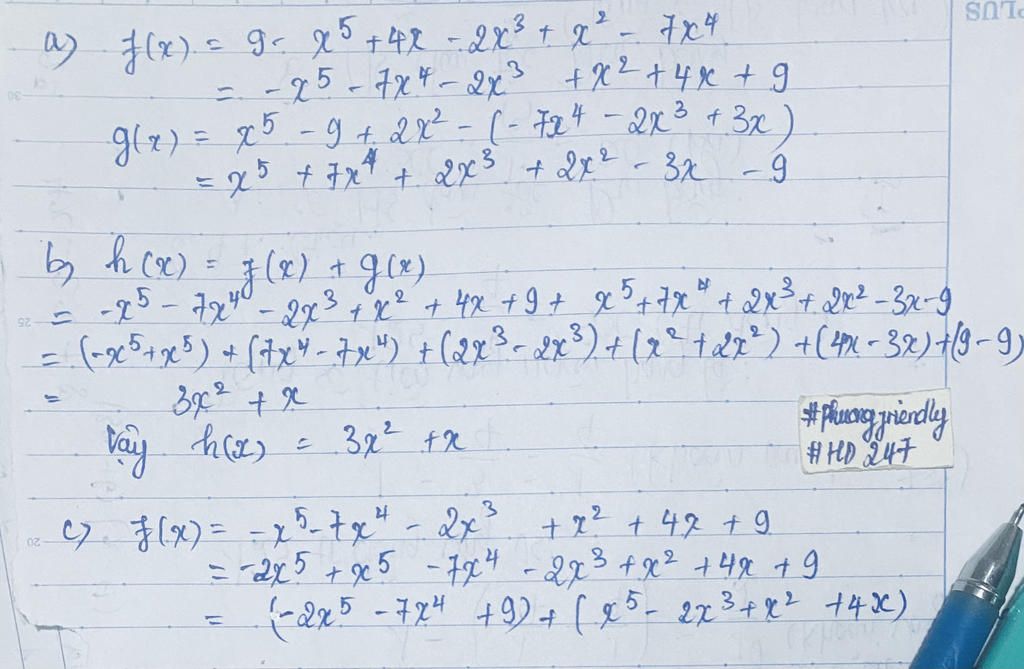 a) f(x) = 9 - x⁵ + 4x - 2x³ + x² - 7x⁴
= -x⁵ - 7x⁴ - 2x³ + x² + 4x + 9
g(x) = x⁵ - 9 + 2x² - (-7x⁴ - 2x³ + 3x)
= x⁵ + 7x⁴ + 2x³ + 2x² - 3x - 9
b) h(x) = f(x) + g(x)
= -x⁵ - 7x⁴ - 2x³ + x² + 4x + 9 + x⁵ + 7x⁴ + 2x³ + 2x² - 3x - 9
= (-x⁵ + x⁵) + (7x⁴ - 7x⁴) + (2x³ - 2x³) + (x² + 2x²) + (4x - 3x) + (9 - 9)
= 3x² + x
Vậy h(x) = 3x² + x
#phuongfriendly
#HD 247
c) f(x) = -x⁵ - 7x⁴ - 2x³ + x² + 4x + 9
= -2x⁵ + x⁵ - 7x⁴ - 2x³ + x² + 4x + 9
= (-2x⁵ - 7x⁴ + 9) + (x⁵ - 2x³ + x² + 4x)